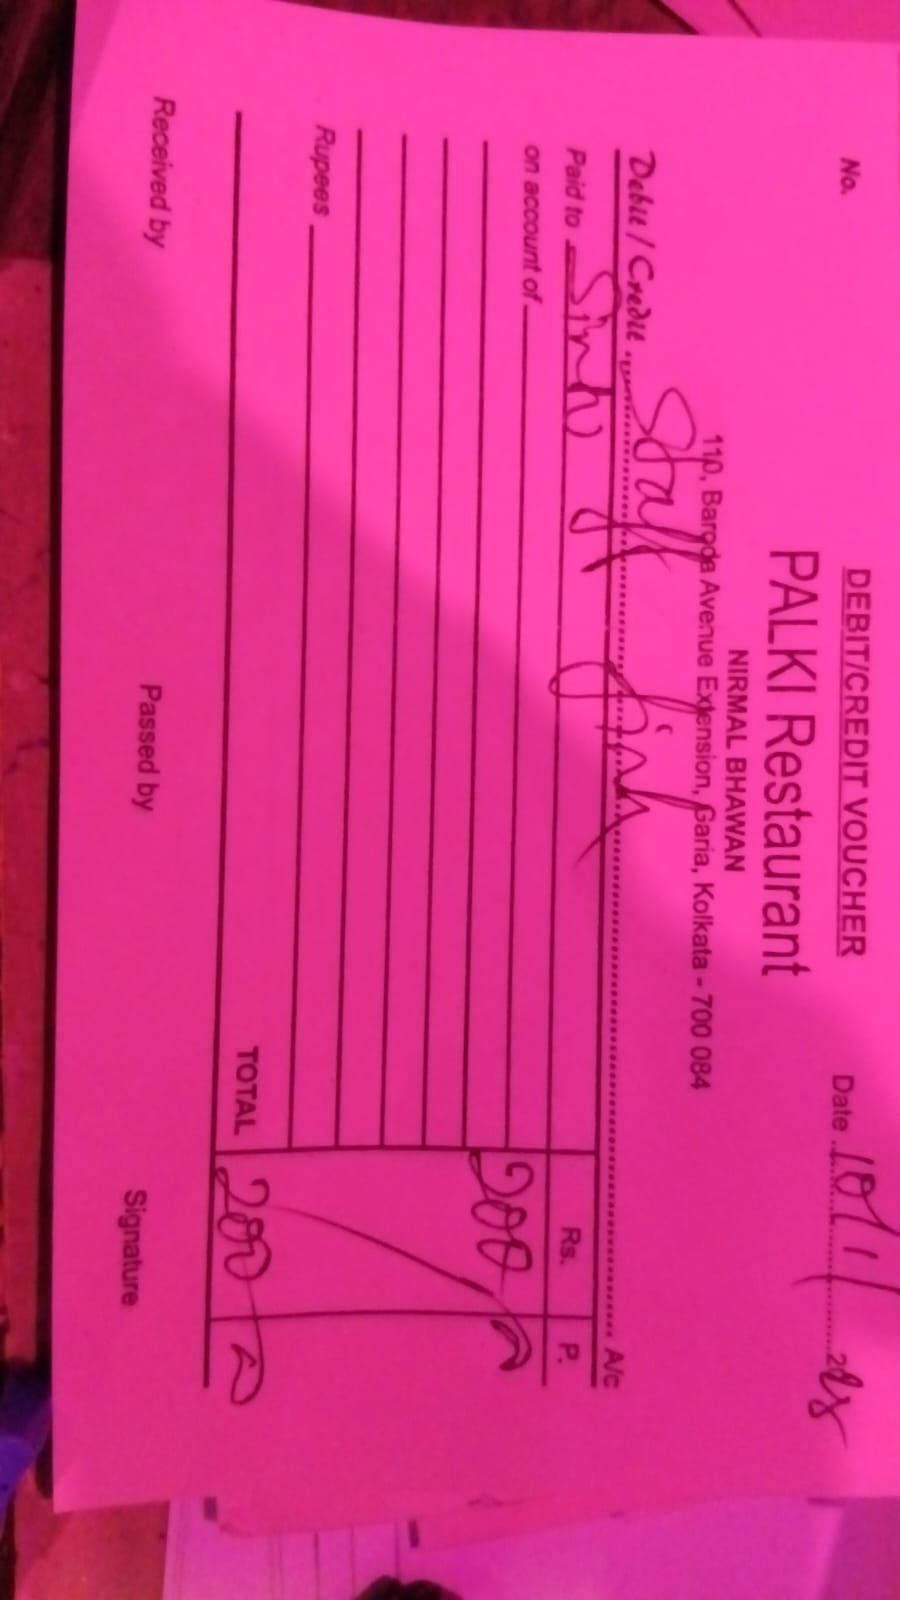 DEBIT/CREDIT VOUCHER
No.
Date 10/1/
PALKI Restaurant
NIRMAL BHAWAN
110, Baroda Avenue Extension, Garia, Kolkata - 700 084
Debit / Credit Staff A/c
Paid to Rs. P.
on account of 200
Rupees
TOTAL 200
Received by Passed by Signature